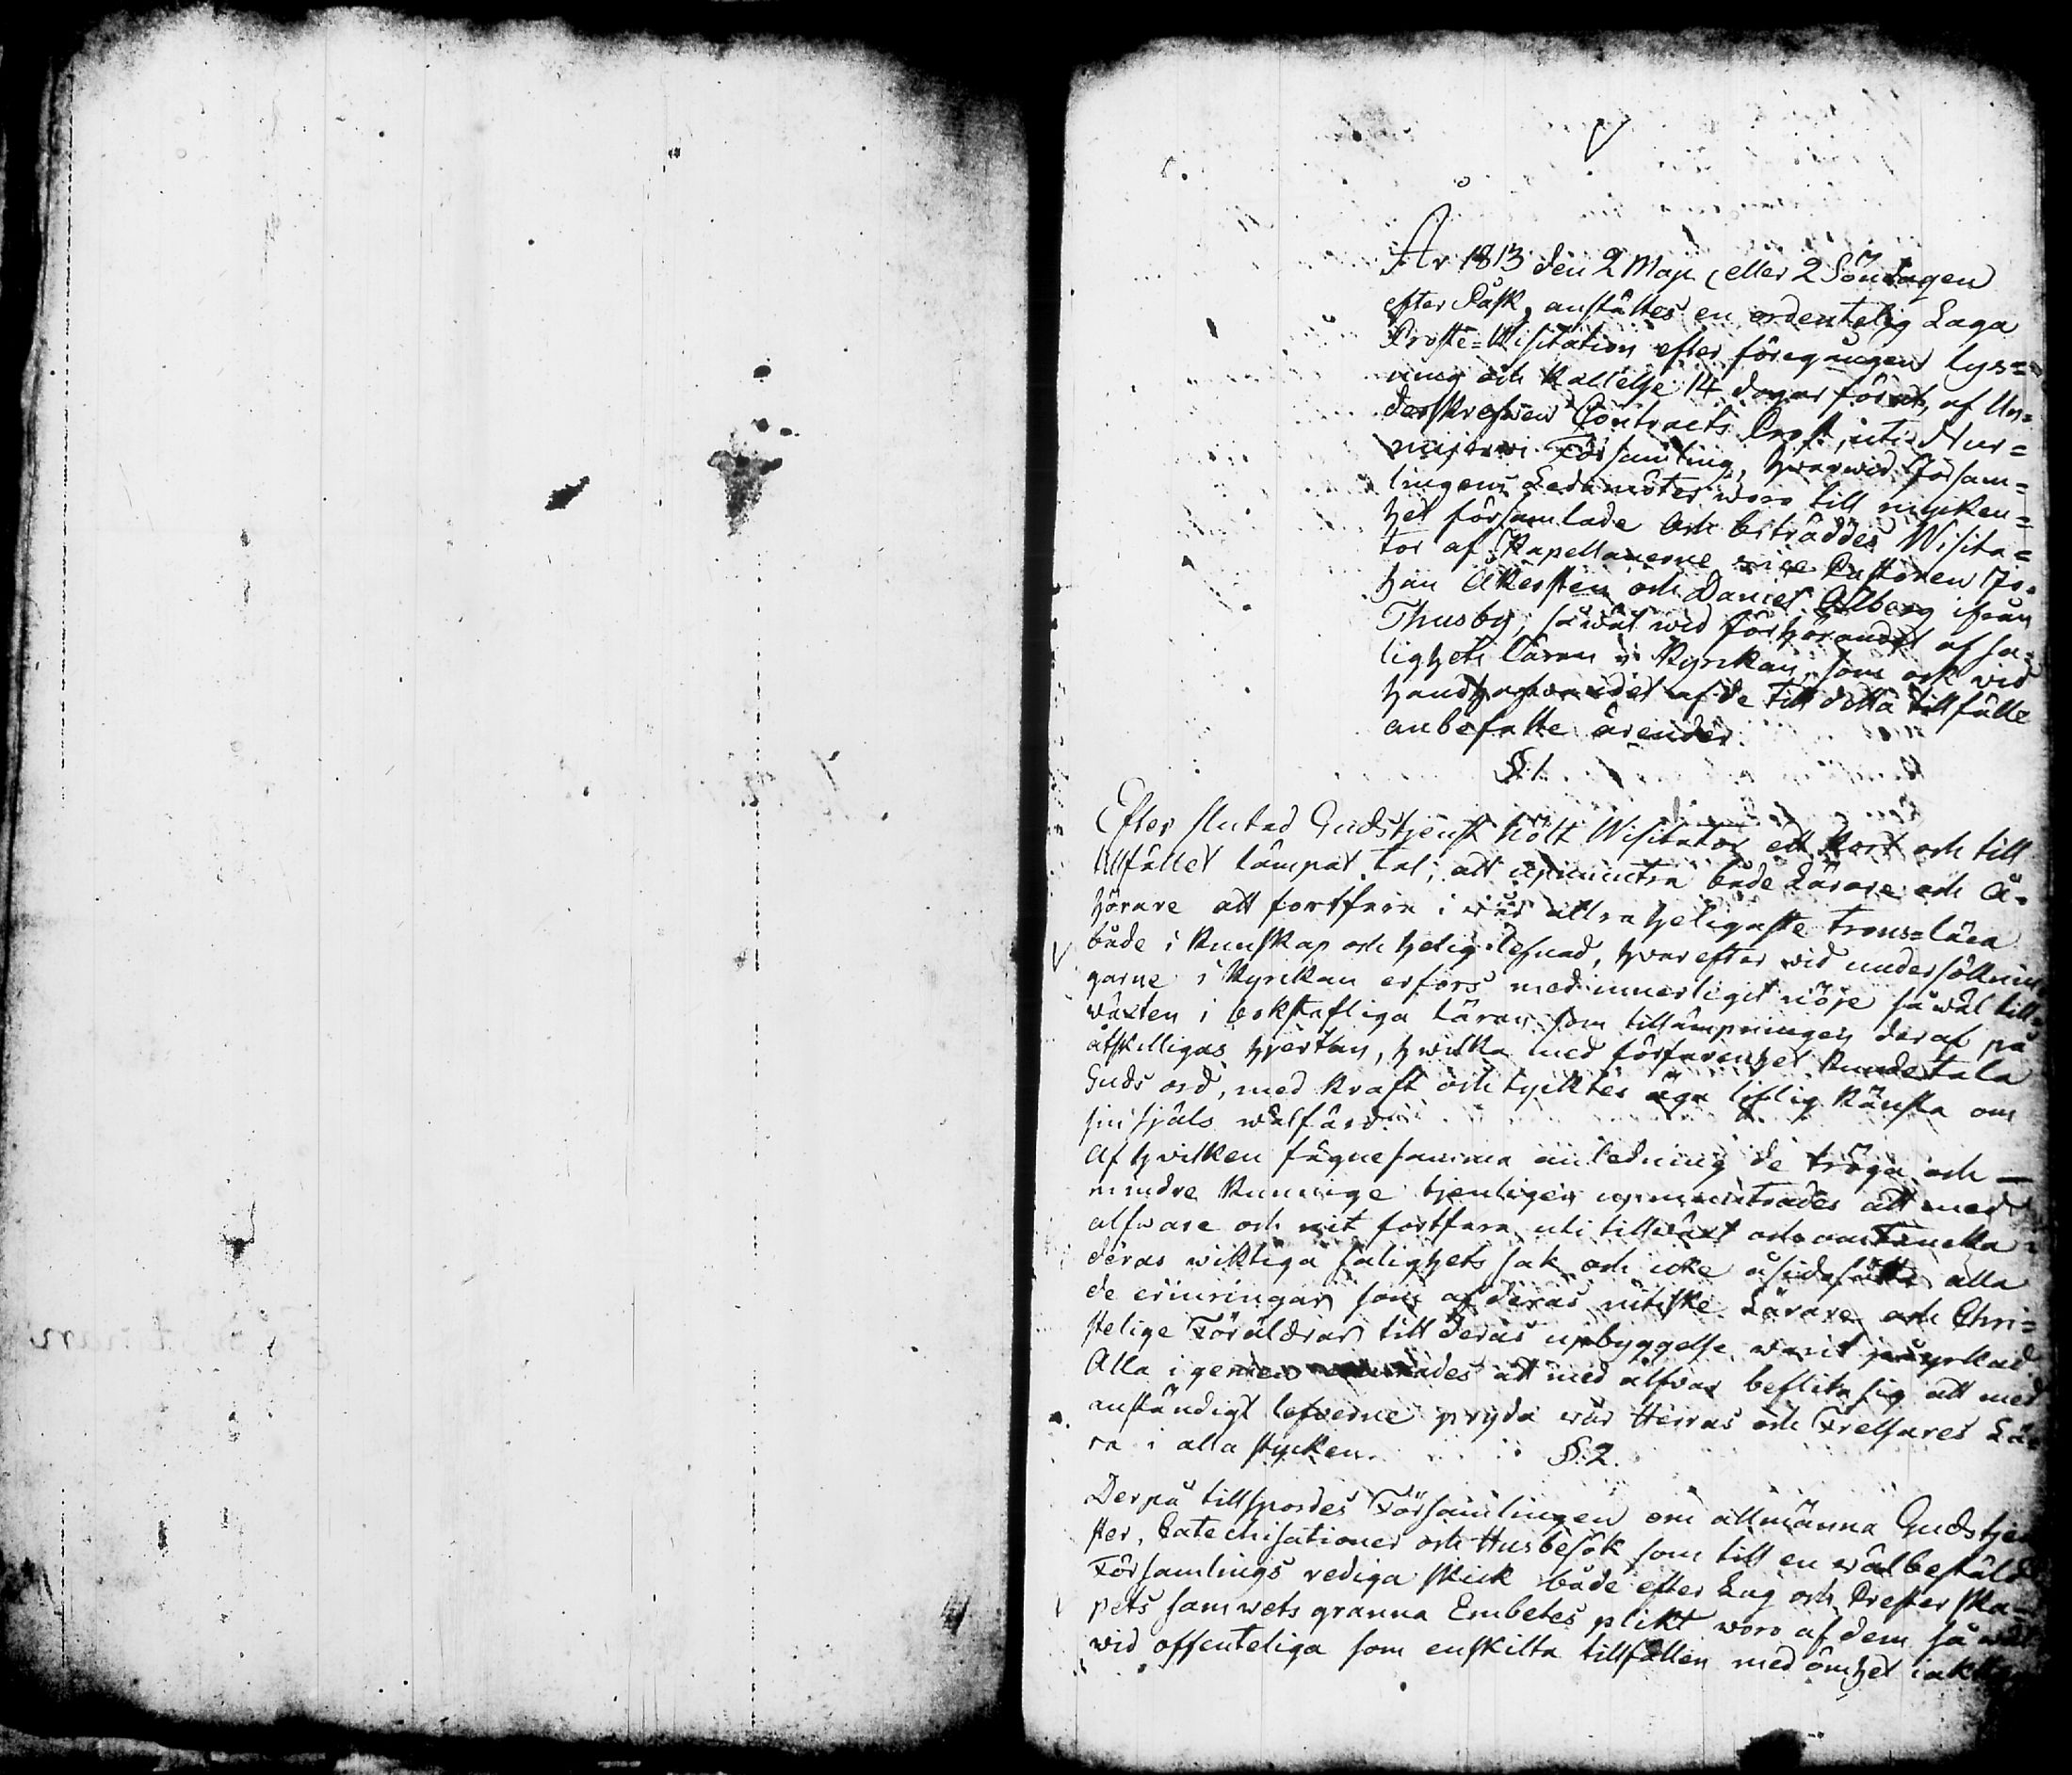 År 1813 den 2 Maji, eller 2 Söndagen
efter Påsk, anställtes en ordentelig Laga
Proste-Wisitation efter föregången lys=
ning och kallelse 14 dagar förut, af Un=
derskrefwen Contracts Prost, uti Nur=
mijerwi Församling, hwarwid Försam=
lingens Ledamöter woro till mycken=
het församlade och biträddes Wisita=
tor af Kapellanerne vice Pastoren Jo=
han Åkersten och Daniel Ahlberg ifrån
Thusby, så wäl wid förhörandet af sa=
lighets läran i Kyrkan, som ock vid
handhafwandet af de till detta tillfälle
anbefalte ärender.
§. 1.
Efter slutad Gudstjenst hölt Wisitator ett kort och till
tillfället lämpat tal, att upmuntra både Lärare och Å=
hörare att fortfara i wår allraheligaste trons=lära
både i kunskap och helig lefnad, hwarefter wid undersöknin
garne i Kyrkan erfors med innerligit nöje så wäl till=
wäxten i bokstafliga läran som tillämpningen deraf på
åtskilligas hjertan, hwilka med förfarenhet kunde tala
Guds ord, med kraft och tycktes äga liflig känsla om
sin själs wälfärd.
Af hvilken fägnesamma anledning de tröga och —
mindre kunnige tjenligen upmuntrades att med
alfware och nit fortfara uti tillwäxt och omtencka
deras wiktiga salighets sak och icke åsidosätta alla
de erinringar som af deras nitiske Lärare och Chri=
stelige Föräldrar till deras upbyggelse warit påyrkad
Alla i gemen att med alfvar beflita sig att med
anständigt lefwerne pryda wår Herras och Frelsares Lä=
ra i alla stycken.
§. 2.
Derpå tillspordes Församlingen om allmänna Gudstjen
ster, Catechisationer och Husbesök som till en wälbestäld
Församlings rediga skick både efter Lag och Prester ska=
pets samwets granna Embetes plikt woro af dem så wäl
wid offenteliga som enskilta tillfällen med ömhet